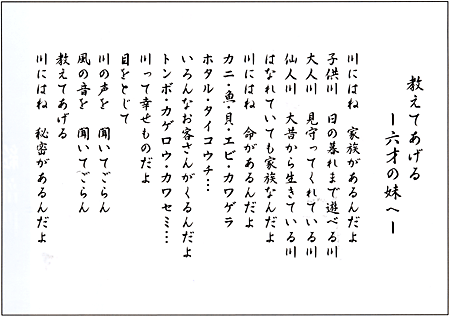 教えてあげる
ー六才の妹へー
川にはね　家族があるんだよ
子供川　日の暮れまで遊べる川
大人川　見守ってくれている川
仙人川　大昔から生きている川
はなれていても家族なんだよ
川にはね　命があるんだよ
カニ・魚・貝・エビ・カワゲラ
ホタル・タイコウチ…
いろんなお客さんがくるんだよ
トンボ・カゲロウ・カワセミ…
川って幸せものだよ
目をとじて
川の声を　聞いてごらん
風の音を　聞いてごらん
教えてあげる
川にはね　秘密があるんだよ